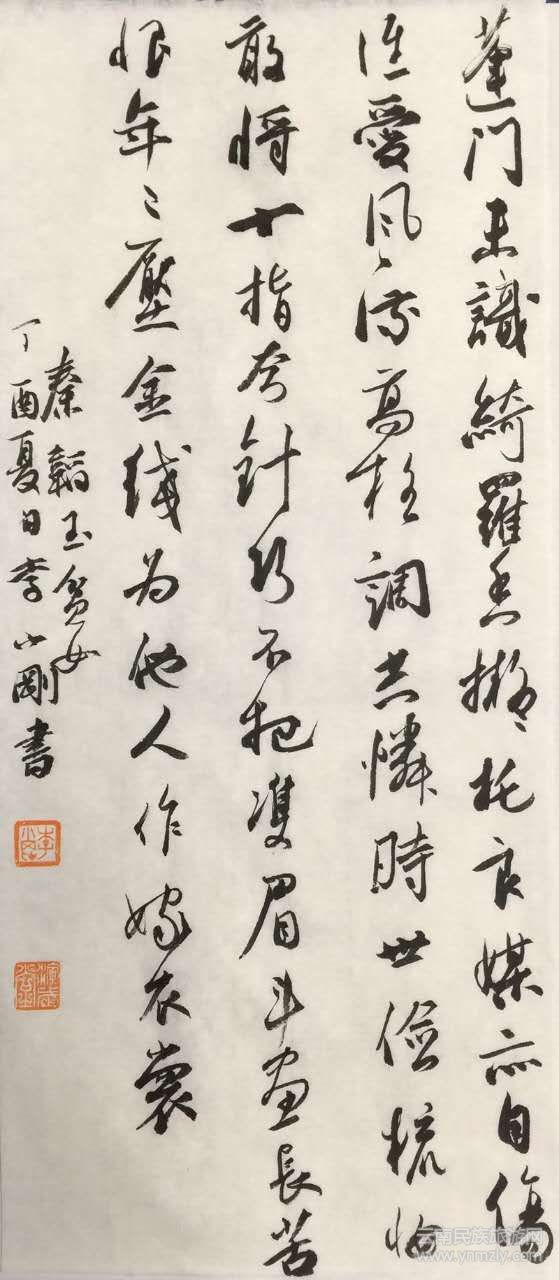 蓬門未識綺羅香擬托良媒亦自傷
誰愛風流高格調共憐時世儉梳妝
敢將十指夸針巧不把雙眉斗畫長苦
恨年〻壓金线为他人作嫁衣裳
秦韜玉貧女
丁酉夏日李小剛書
云南民族旅游网
www.ynmzly.com